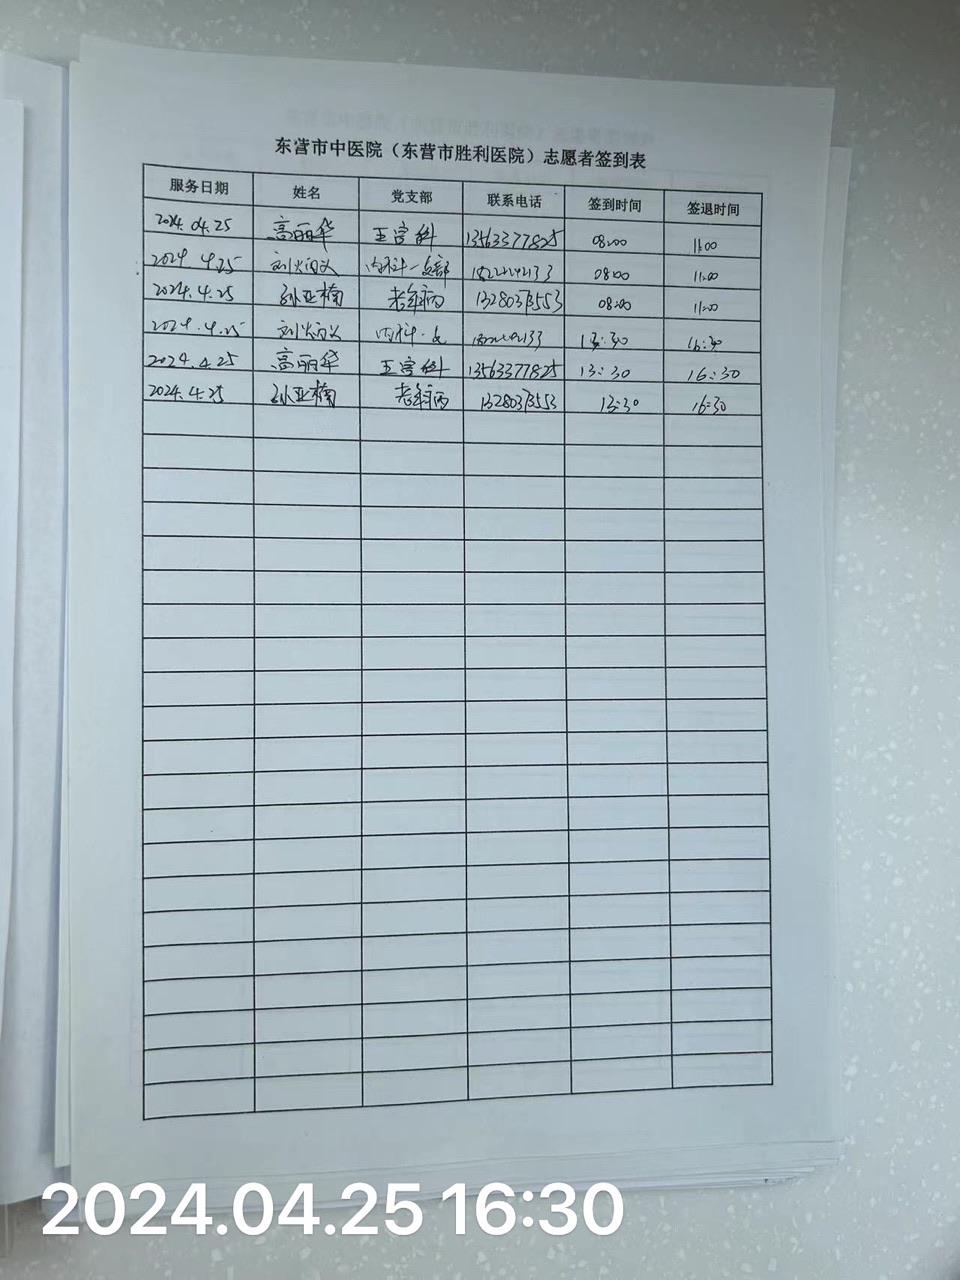 东营市中医院（东营市胜利医院）志愿者签到表
服务日期 姓名 党支部 联系电话 签到时间 签退时间
2024.04.25 高丽华 五官科 13563377825 08:00 11:00
2024 4.25 内科一支部 08:00 11:00
2024.4.25 孙亚楠 老年病 08:00 11:00
2024.4.25 内科一支 13:30 16:30
2024.4.25 高丽华 五官科 13563377825 13:30 16:30
2024.4.25 孙亚楠 老年病 13:30 16:30
2024.04.25 16:30